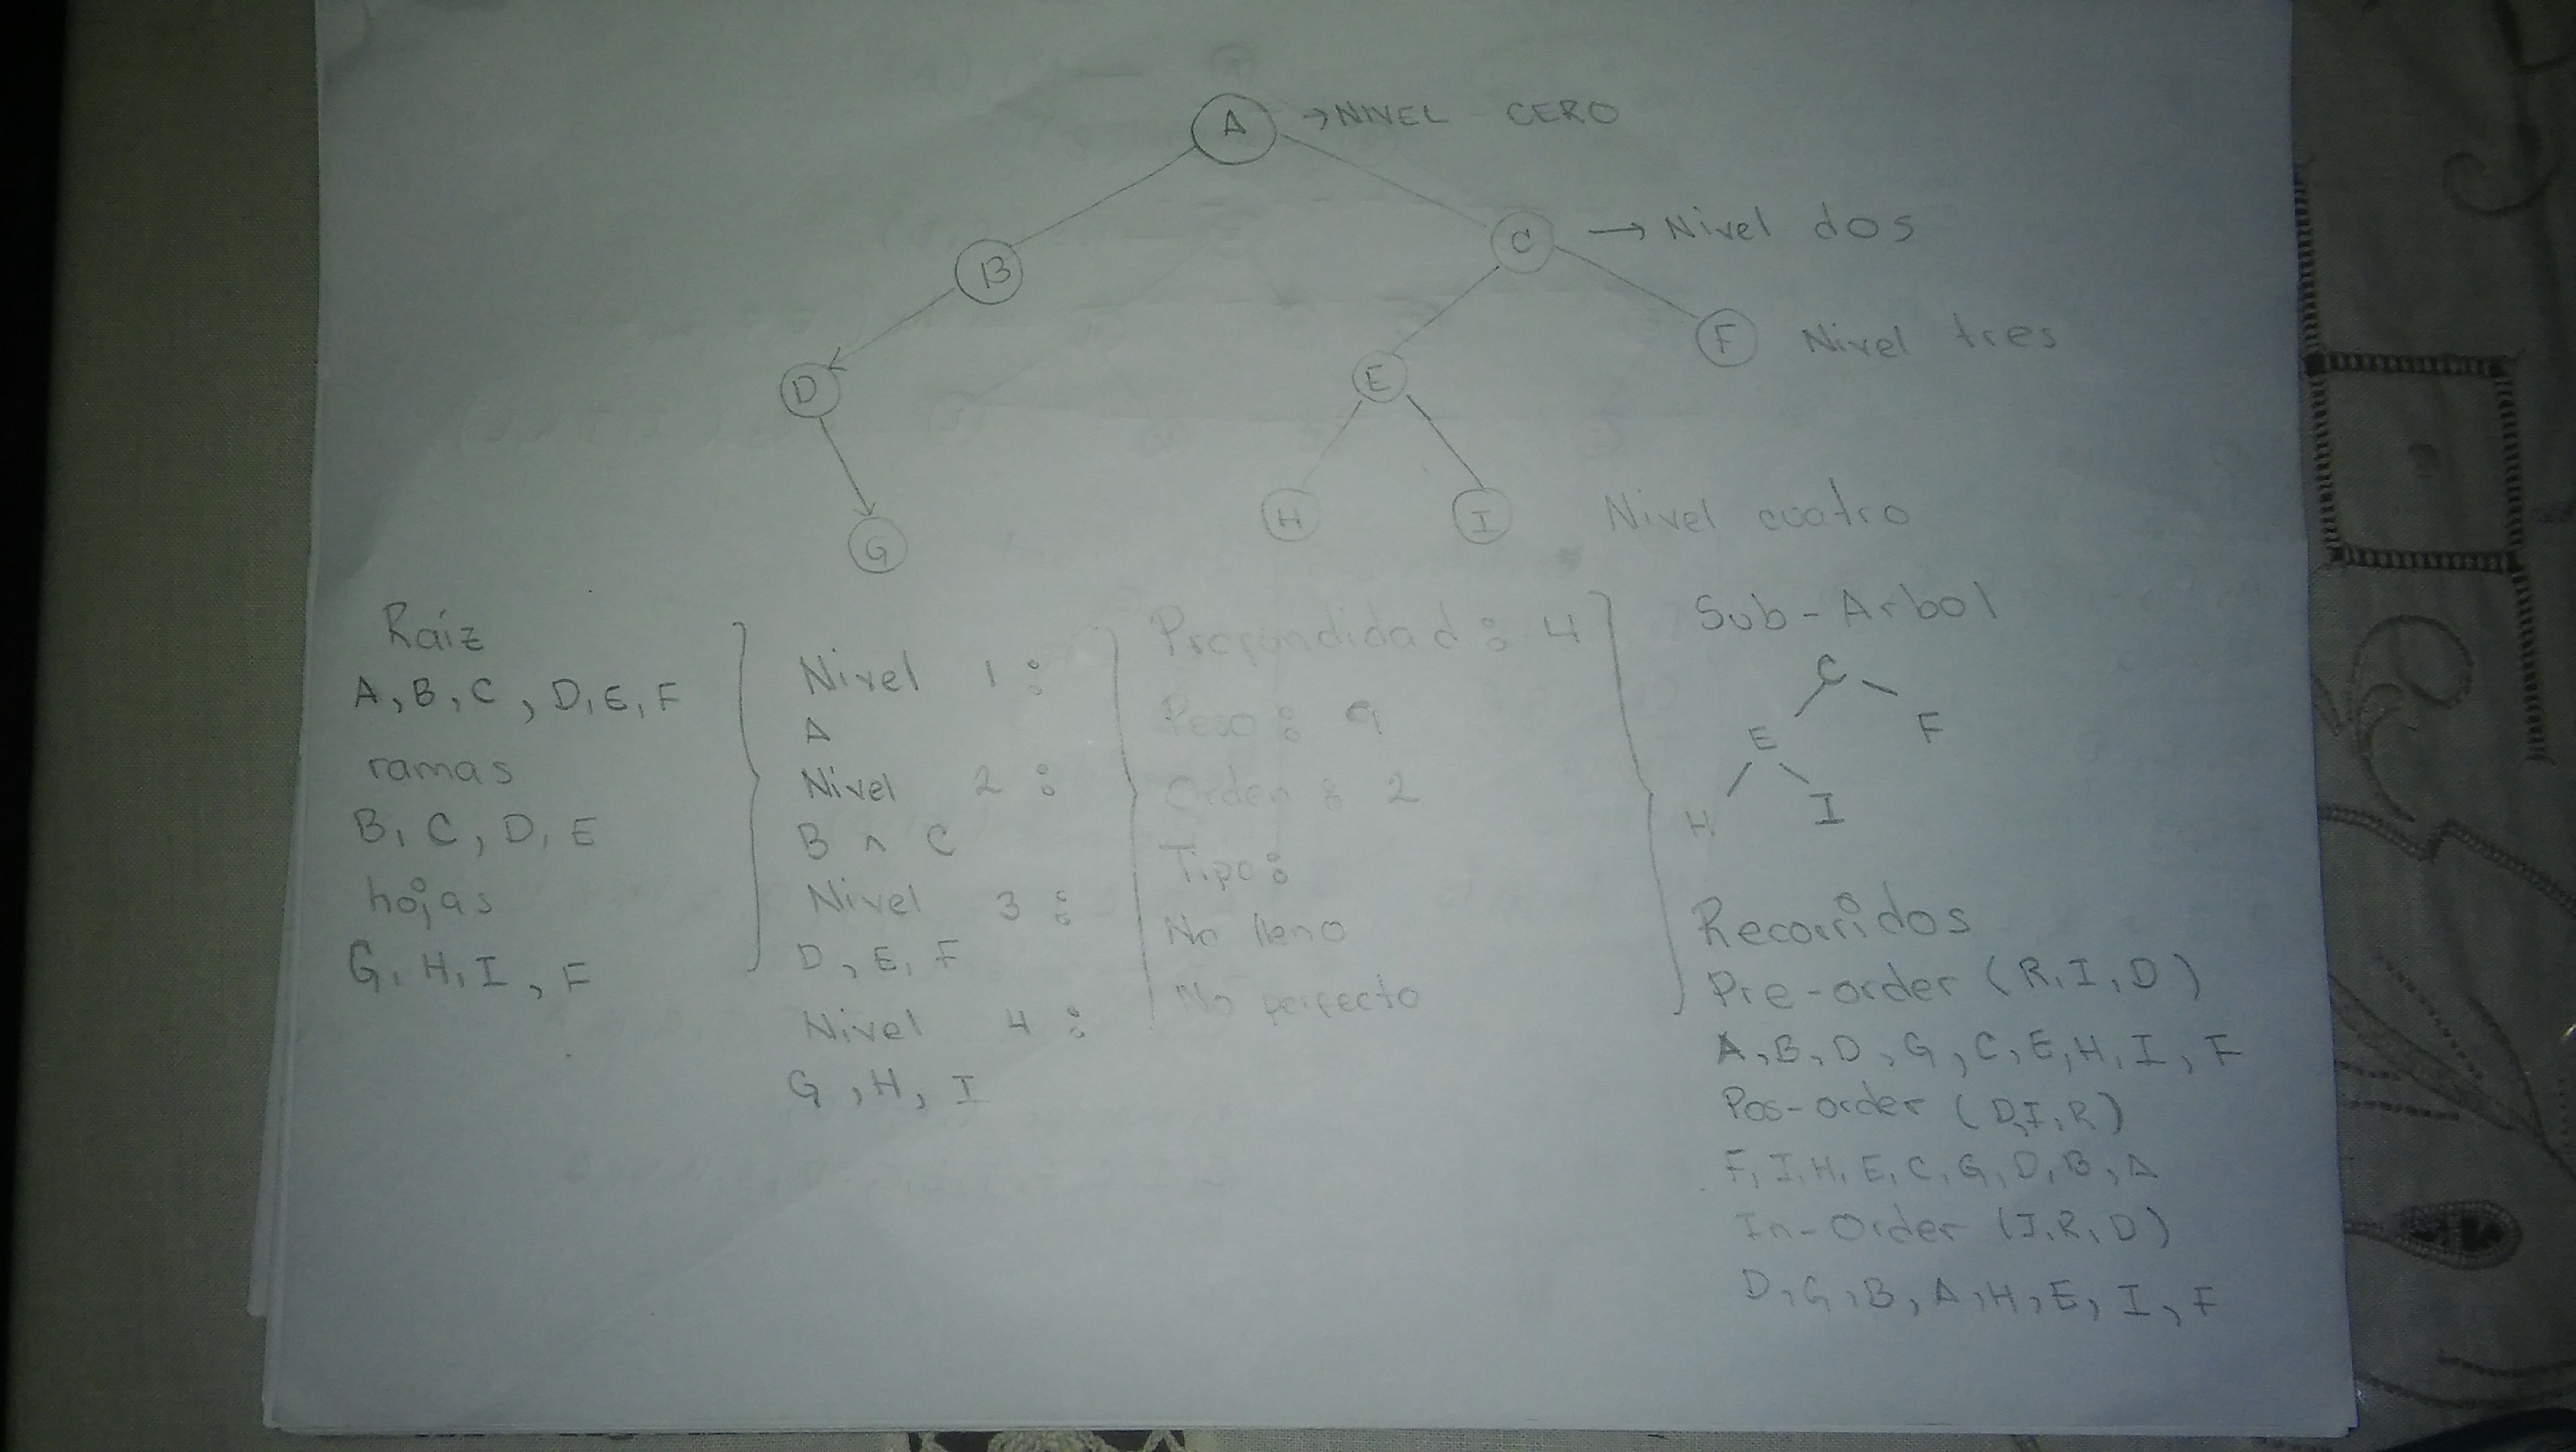 A → NIVEL - CERO
B
C → Nivel dos
D
E
F Nivel tres
G
H
I
Nivel cuatro
Raíz
A, B, C, D, E, F
ramas
B, C, D, E
hojas
G, H, I, F
Nivel 1:
A
Nivel 2:
B, C
Nivel 3:
D, E, F
Nivel 4:
G, H, I
Profundidad: 4
Peso: 9
Orden: 2
Tipo:
No lleno
No perfecto
Sub-Arbol
C
E
F
H
I
Recorridos
Pre-order (R, I, D)
A, B, D, G, C, E, H, I, F
Pos-order (D, I, R)
F, I, H, E, C, G, D, B, A
In-Order (I, R, D)
D, G, B, A, H, E, I, F